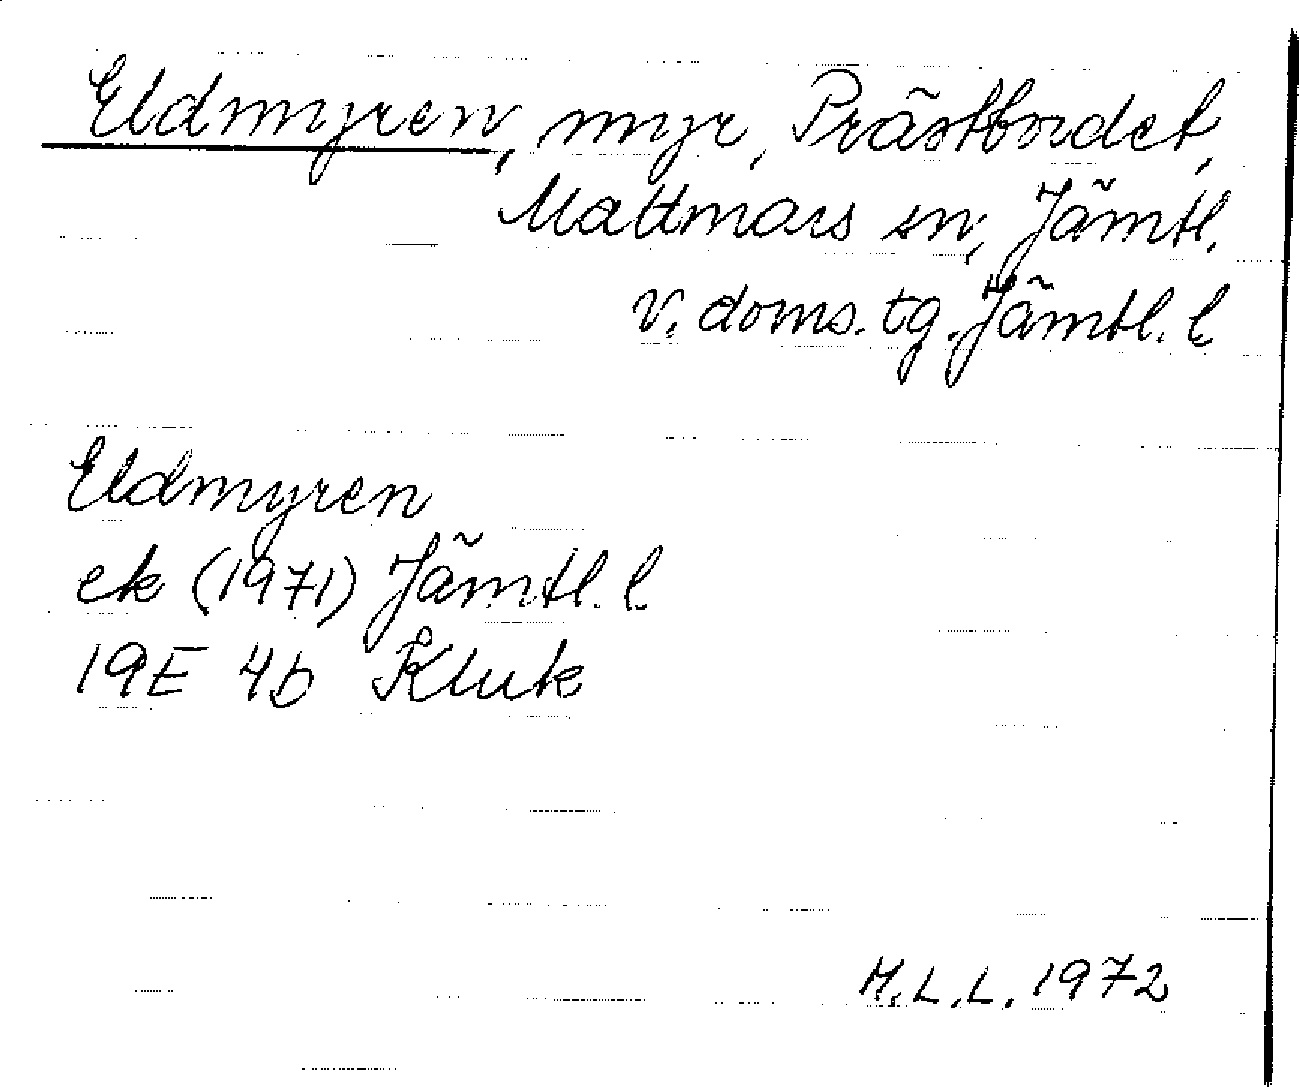 Eldmyren, myr, Prästbordet,
Mattmars sn, Jämtl.
v. doms. tg. Jämtl. l.
Eldmyren
ek (1971) Jämtl. l.
19E 4b Kluk
M.L.L. 1972